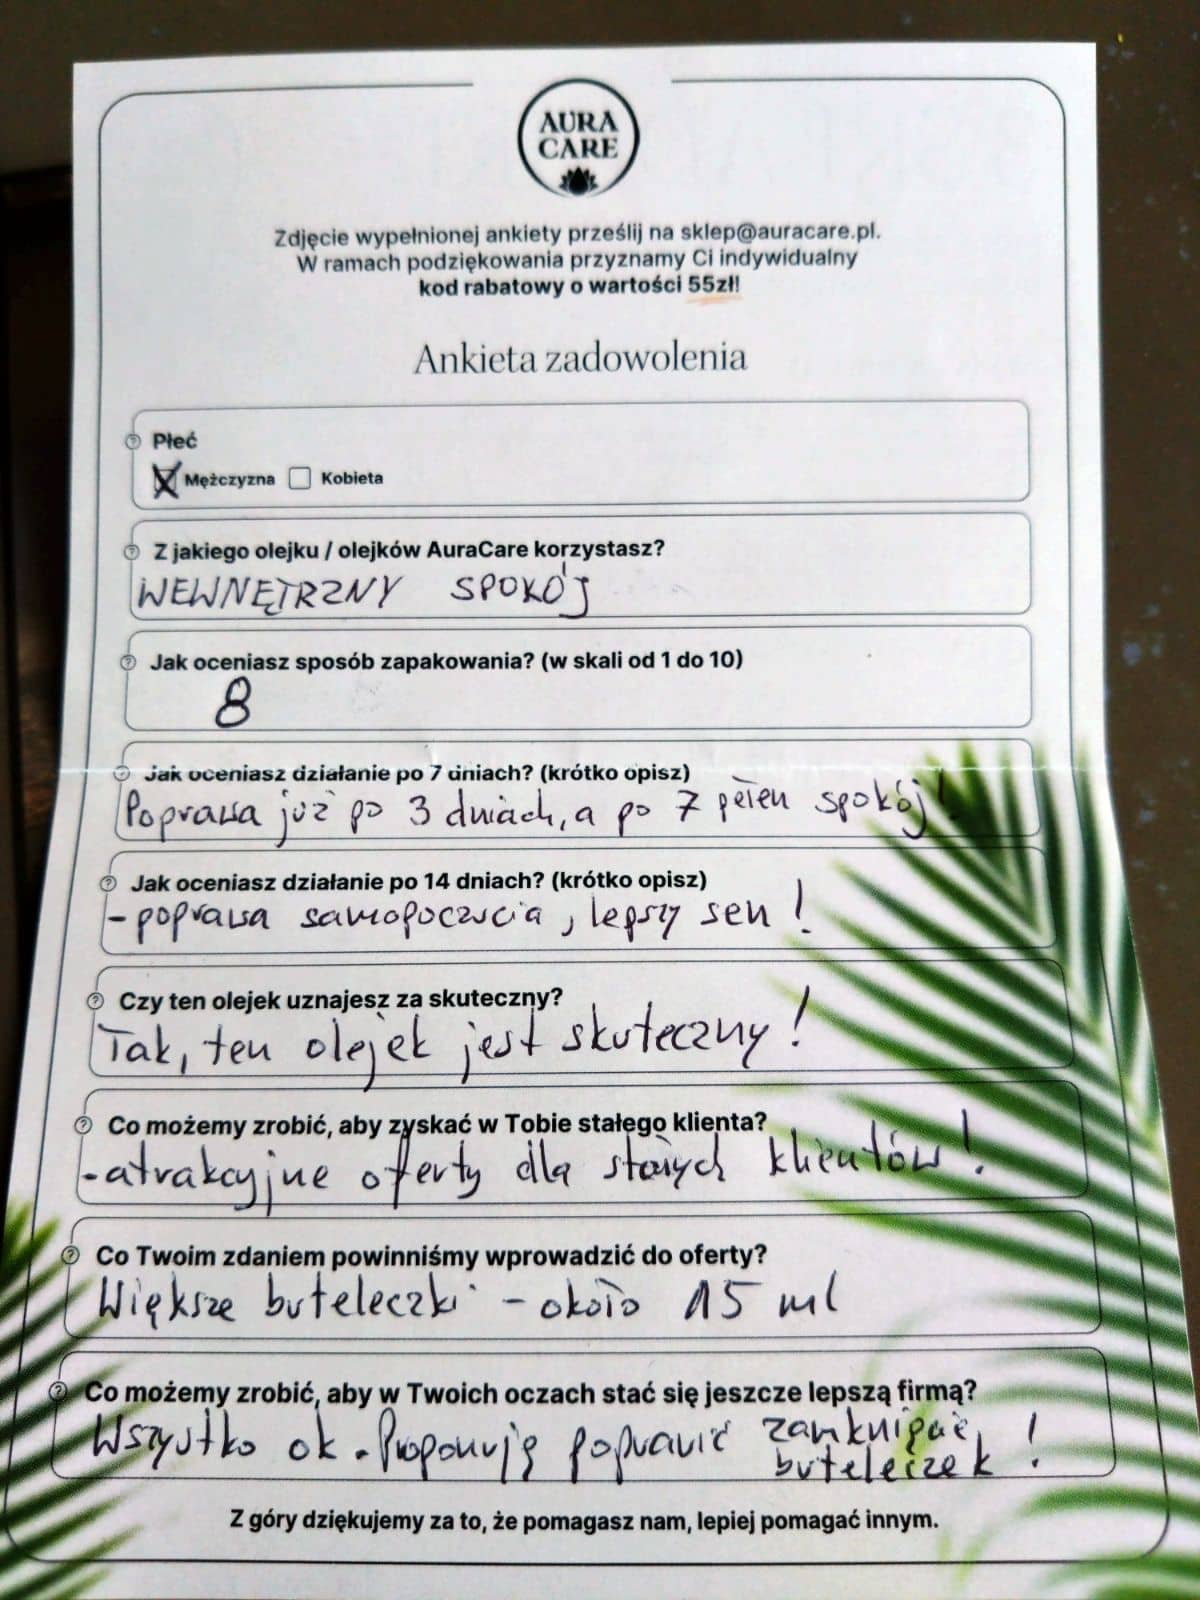 AURA
CARE
Zdjęcie wypełnionej ankiety prześlij na sklep@auracare.pl.
W ramach podziękowania przyznamy Ci indywidualny
kod rabatowy o wartości 55zł!
Ankieta zadowolenia
Płeć
Mężczyzna Kobieta
Z jakiego olejku / olejków AuraCare korzystasz?
WEWNĘTRZNY SPOKÓJ
Jak oceniasz sposób zapakowania? (w skali od 1 do 10)
8
Jak oceniasz działanie po 7 dniach? (krótko opisz)
Poprawa już po 3 dniach, a po 7 pełen spokój!
Jak oceniasz działanie po 14 dniach? (krótko opisz)
- poprawa samopoczucia, lepszy sen!
Czy ten olejek uznajesz za skuteczny?
Tak, ten olejek jest skuteczny!
Co możemy zrobić, aby zyskać w Tobie stałego klienta?
- atrakcyjne oferty dla stałych klientów!
Co Twoim zdaniem powinniśmy wprowadzić do oferty?
Większe buteleczki - około 15 ml
Co możemy zrobić, aby w Twoich oczach stać się jeszcze lepszą firmą?
Wszystko ok. Proponuję poprawić zamknięcie
buteleczek!
Z góry dziękujemy za to, że pomagasz nam, lepiej pomagać innym.